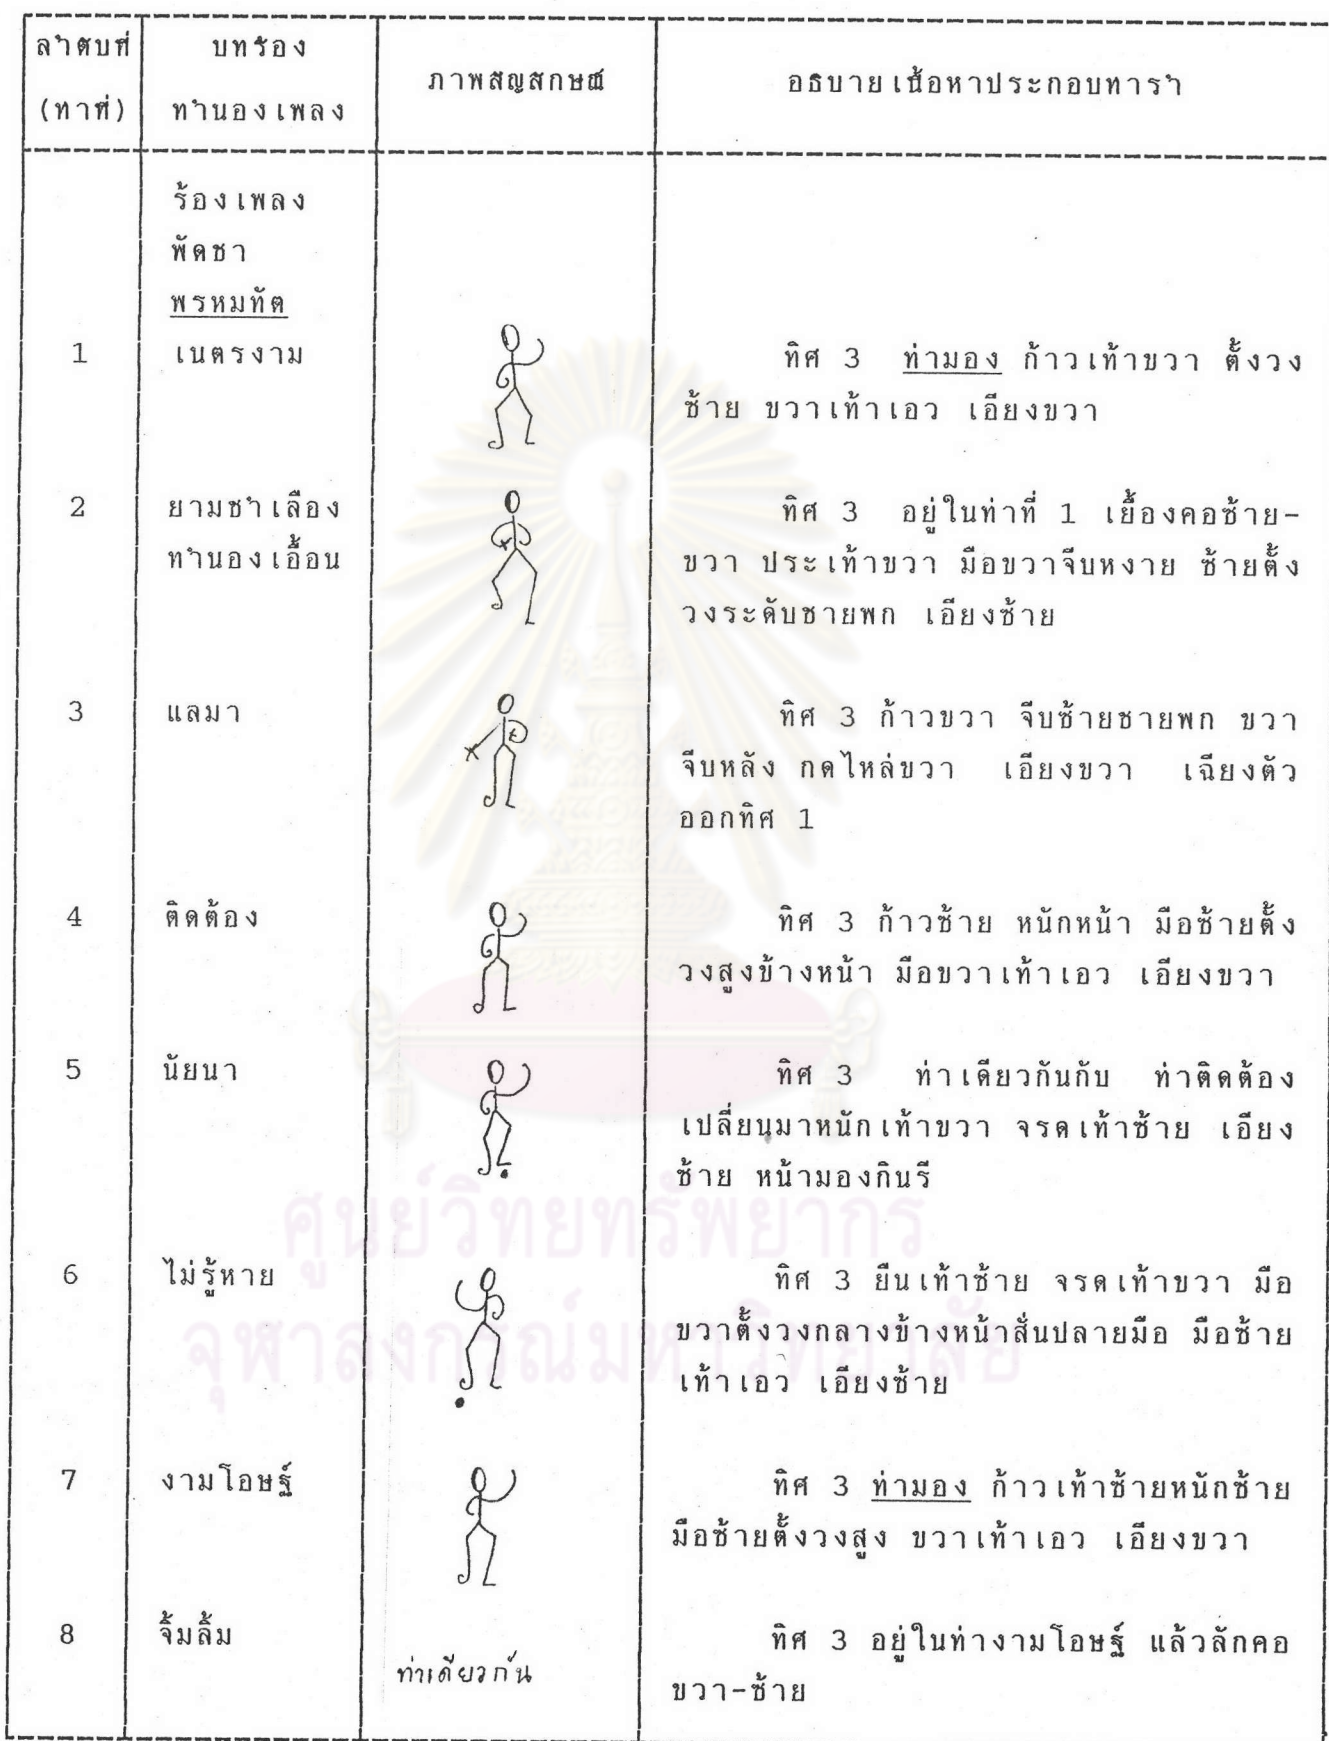 ลำดับที่ บทร้อง ภาพสัญลักษณ์ อธิบายเนื้อหาประกอบท่ารำ
(ท่าที่) ทำนองเพลง
ร้องเพลง
พัดชา
พรหมทัต
1 เนตรงาม ทิศ 3 ท่ามอง ก้าวเท้าขวา ตั้งวง
ซ้าย ขวาเท้าเอว เอียงขวา
2 ยามชำเลือง ทิศ 3 อยู่ในท่าที่ 1 เยื้องคอซ้าย-
ทำนองเอื้อน ขวา ประเท้าขวา มือขวาจีบหงาย ซ้ายตั้ง
วงระดับชายพก เอียงซ้าย
3 แลมา ทิศ 3 ก้าวขวา จีบซ้ายชายพก ขวา
จีบหลัง กดไหล่ขวา เอียงขวา เฉียงตัว
ออกทิศ 1
4 ติดต้อง ทิศ 3 ก้าวซ้าย หนักหน้า มือซ้ายตั้ง
วงสูงข้างหน้า มือขวาเท้าเอว เอียงขวา
5 นัยนา ทิศ 3 ท่าเดียวกันกับ ท่าติดต้อง
เปลี่ยนมาหนักเท้าขวา จรดเท้าซ้าย เอียง
ซ้าย หน้ามองกินรี
6 ไม่รู้หาย ทิศ 3 ยืนเท้าซ้าย จรดเท้าขวา มือ
ขวาตั้งวงกลางข้างหน้าสั่นปลายมือ มือซ้าย
เท้าเอว เอียงซ้าย
7 งามโอษฐ์ ทิศ 3 ท่ามอง ก้าวเท้าซ้ายหนักซ้าย
มือซ้ายตั้งวงสูง ขวาเท้าเอว เอียงขวา
8 จิ้มลิ้ม ท่าเดียวกัน ทิศ 3 อยู่ในท่างามโอษฐ์ แล้วลักคอ
ขวา-ซ้าย
ศูนย์วิทยทรัพยากร
จุฬาลงกรณ์มหาวิทยาลัย